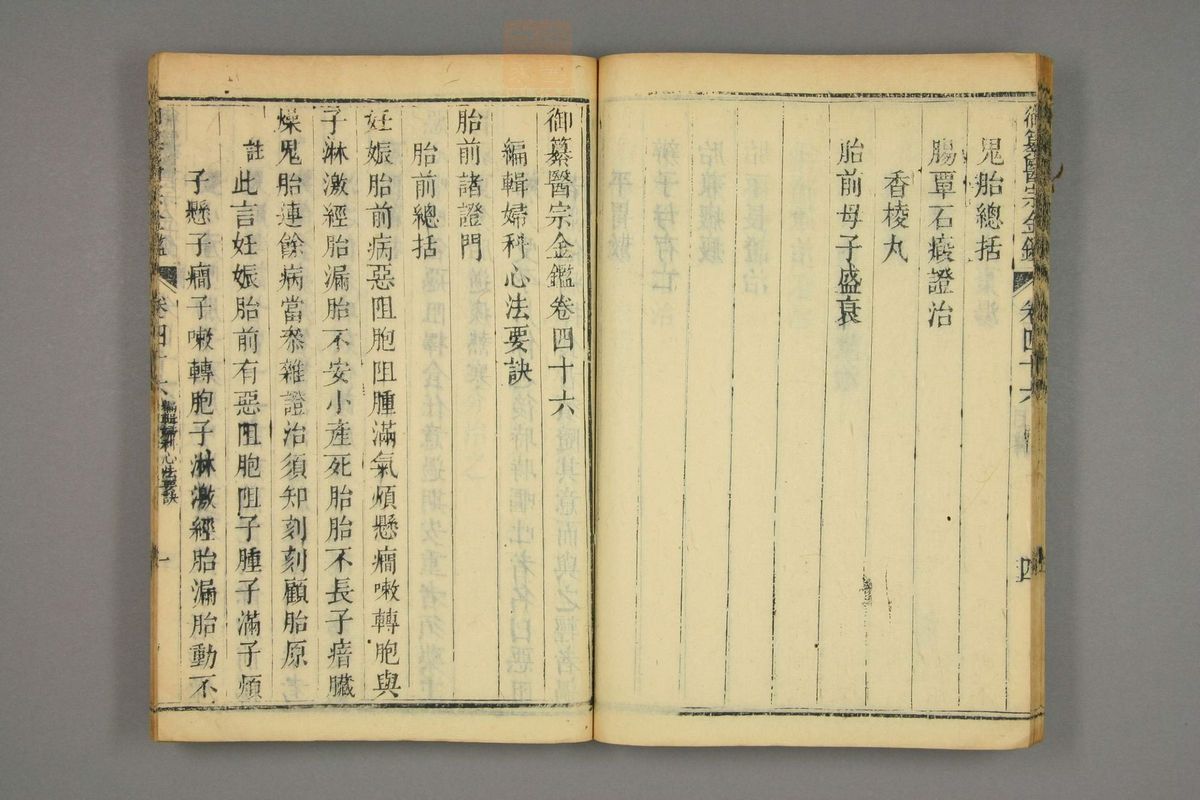 御纂醫宗金鑑
卷四十六
四
鬼胎總括
腸覃石瘕證治
香棱丸
胎前母子盛衰
御纂醫宗金鑑卷四十六
編輯婦科心法要訣
胎前諸證門
胎前總括
妊娠胎前病惡阻胞阻腫滿氣煩懸癎嗽轉胞與
子淋激經胎漏胎不安小產死胎胎不長子瘖臟
燥鬼胎連餘病當叅雜證治須知刻刻顧胎原
註
此言妊娠胎前有惡阻胞阻子腫子滿子煩
子懸子癎子嗽轉胞子淋激經胎漏胎動不
卷四十六
編輯婦科心法要訣
一